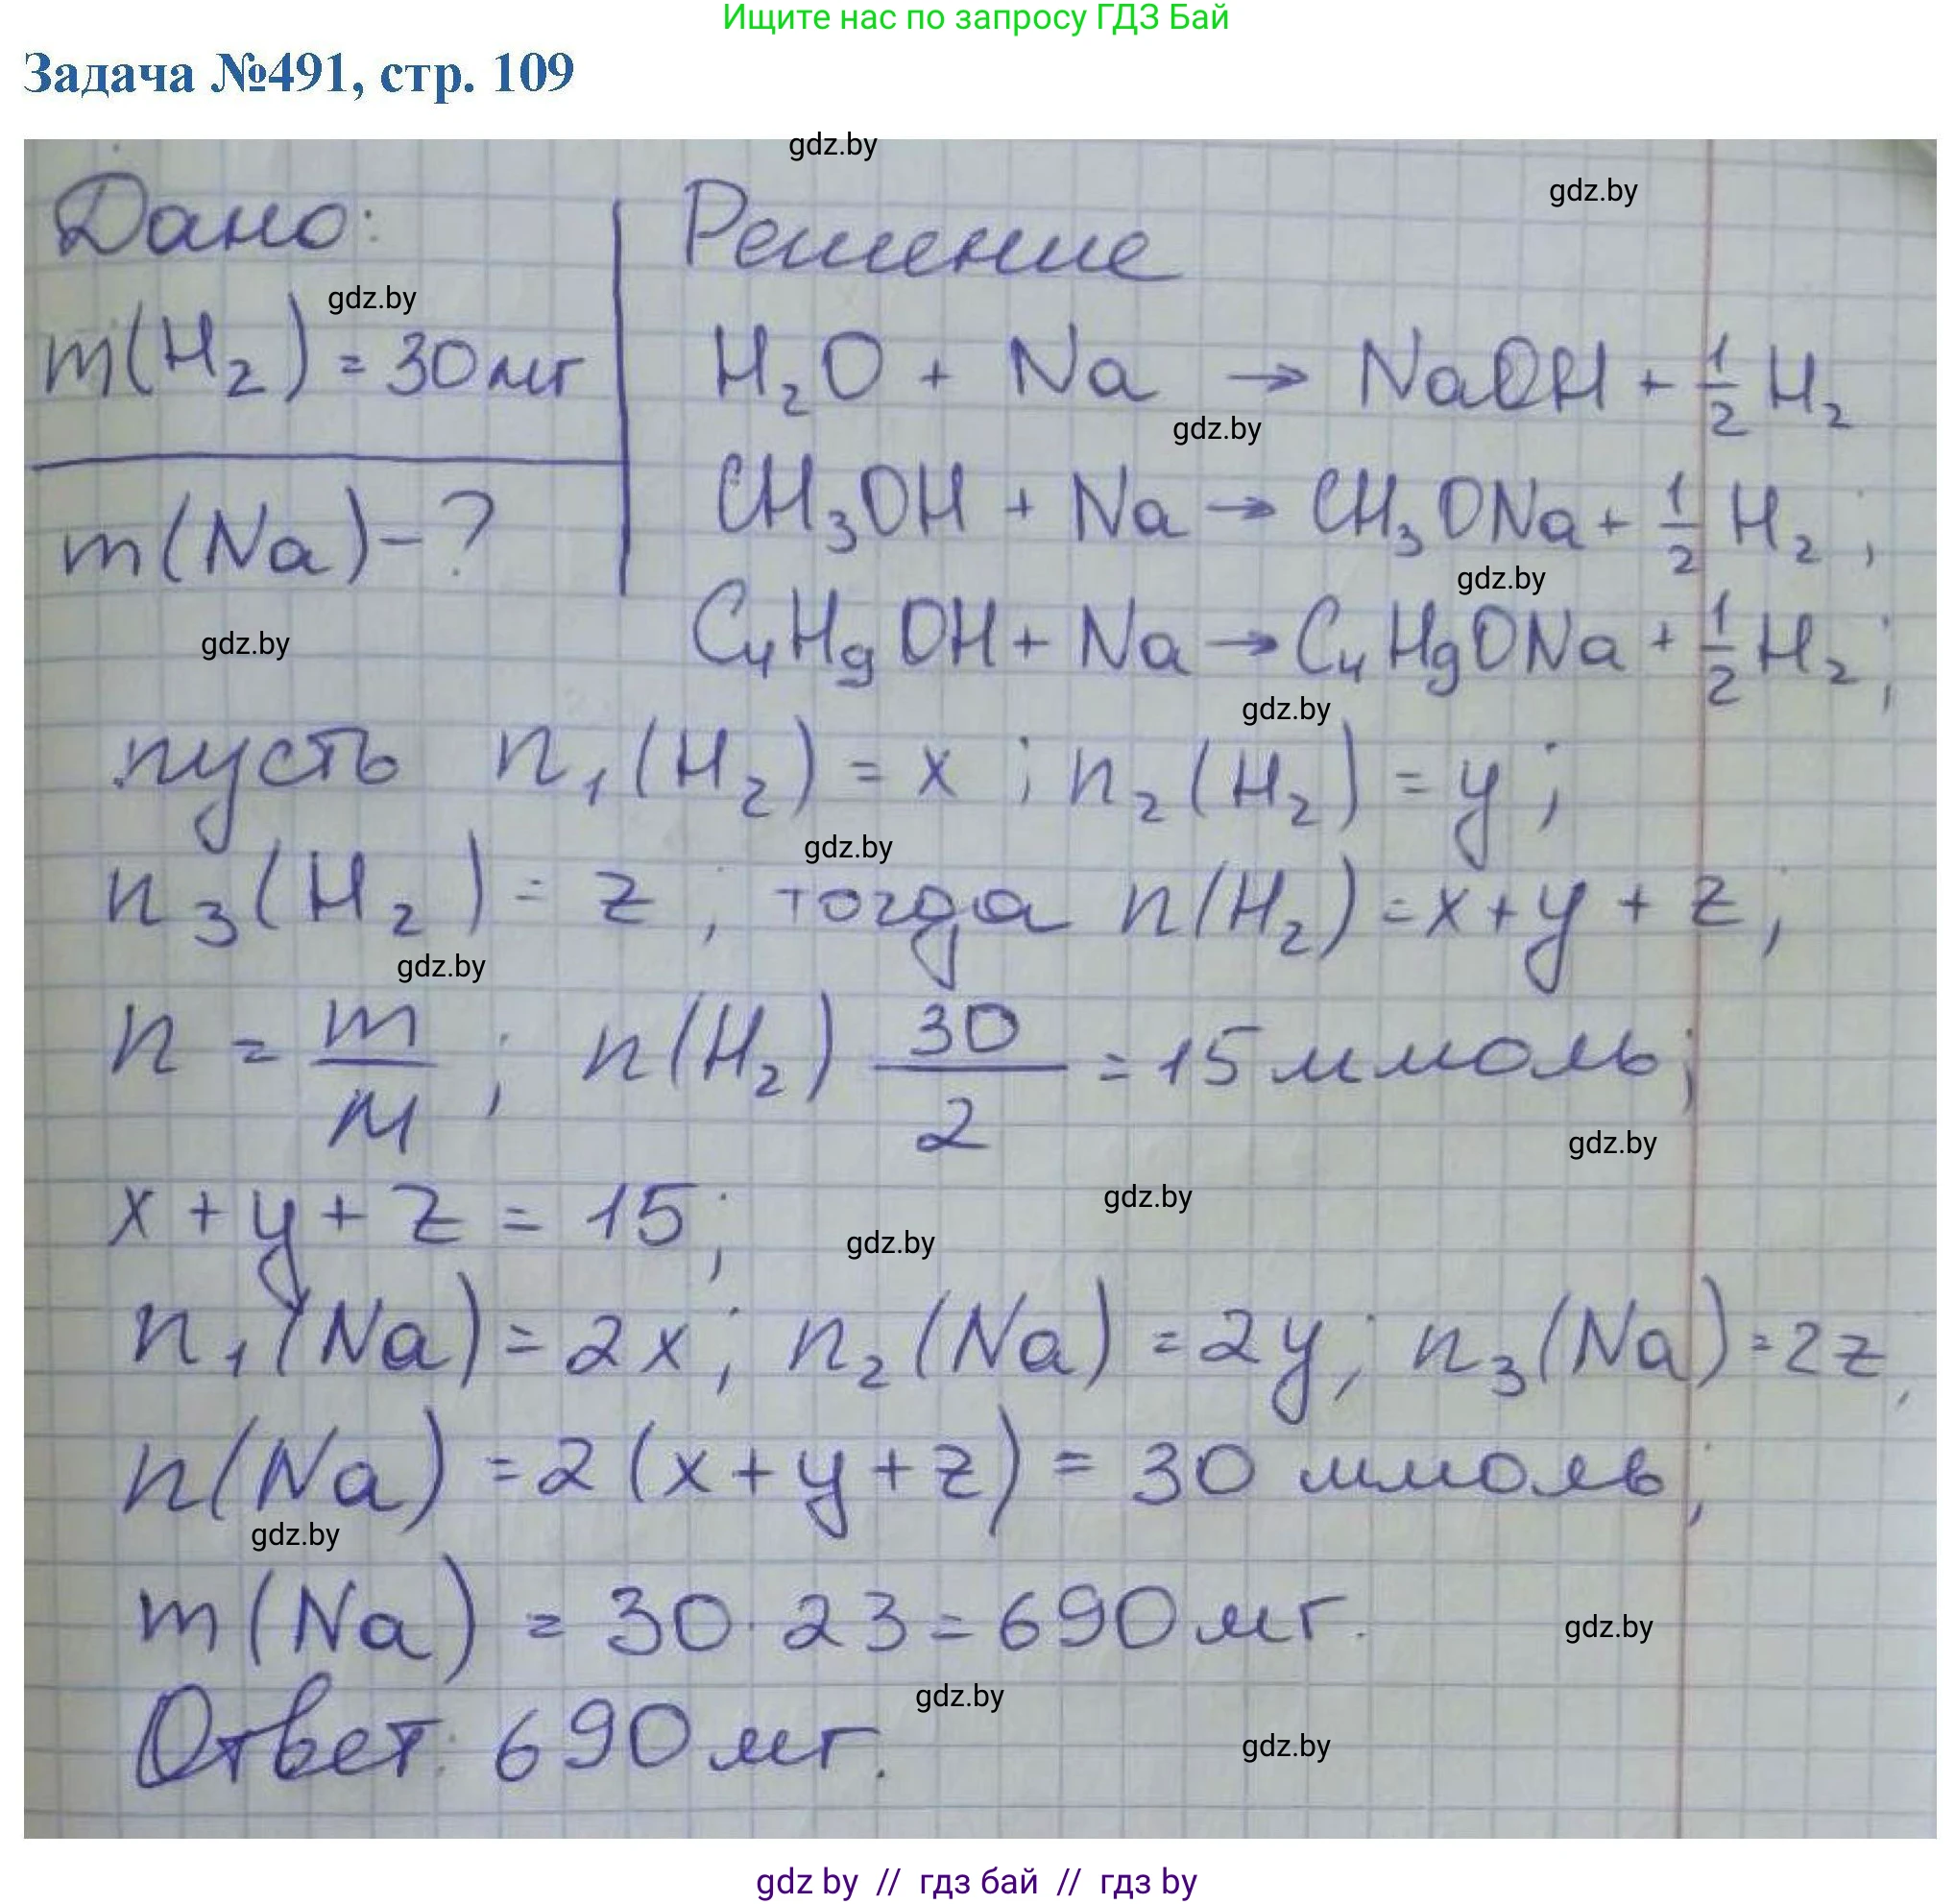 Ищите нас по запросу ГДЗ Бай
Задача №491, стр. 109
gdz.by
gdz.by
Дано:
Решение
gdz.by
m(H₂) = 30 мг
H₂O + Na → NaOH + 1/2 H₂
gdz.by
CH₃OH + Na → CH₃ONa + 1/2 H₂;
m(Na) - ?
gdz.by
C₄H₉OH + Na → C₄H₉ONa + 1/2 H₂;
gdz.by
gdz.by
пусть n₁(H₂) = x; n₂(H₂) = y;
gdz.by
n₃(H₂) = z, тогда n(H₂) = x + y + z;
gdz.by
n = m/M; n(H₂) 30/2 = 15 ммоль;
gdz.by
x + y + z = 15;
gdz.by
gdz.by
n₁(Na) = 2x; n₂(Na) = 2y; n₃(Na) = 2z,
n(Na) = 2(x + y + z) = 30 ммоль;
gdz.by
m(Na) = 30 · 23 = 690 мг.
gdz.by
gdz.by
Ответ: 690 мг.
gdz.by
gdz by // гдз бай // гдз by